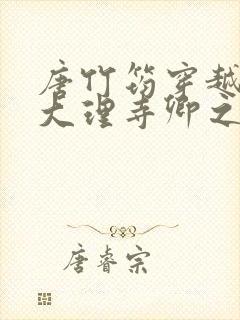 唐竹筠穿越
大理寺卿之
唐睿宗